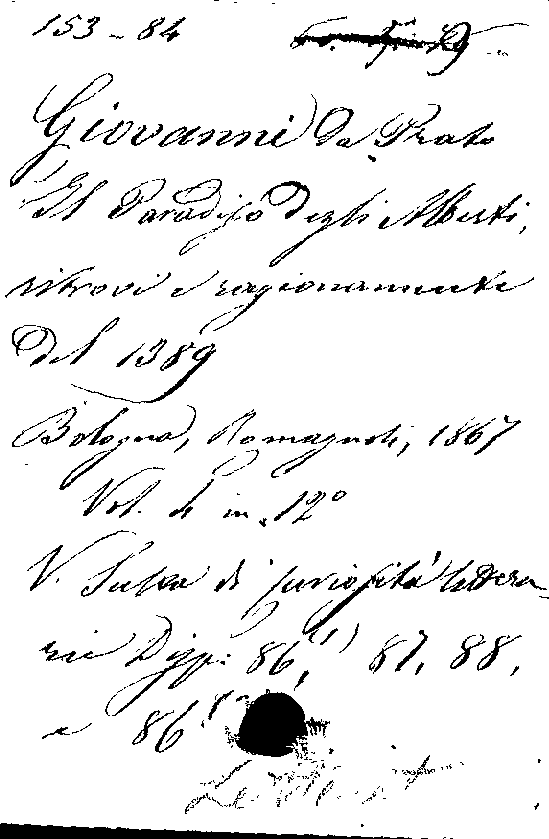 153-84
Giovanni da Prato
Il Paradiso degli Alberti,
ritrovi e ragionamenti
del 1389
Bologna, Romagnoli, 1867
Vol. 4 in 12°
V. Scelta di curiosità lettera-
rie Disp: 86,(1) 87, 88,
e 86